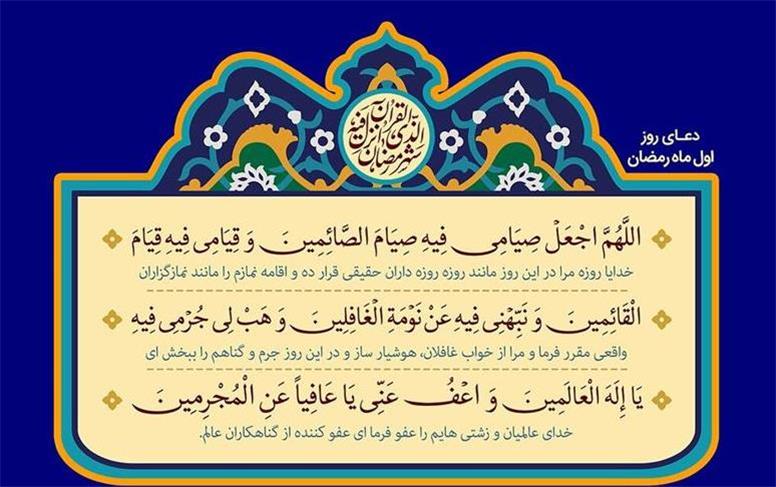 شهر رمضان الذی انزل فیه القرآن
دعای روز
اول ماه رمضان
اللَّهُمَّ اجْعَلْ صِيَامِي فِيهِ صِيَامَ الصَّائِمِينَ وَ قِيَامِي فِيهِ قِيَامَ
خدایا روزه مرا در این روز مانند روزه روزه داران حقیقی قرار ده و اقامه نمازم را مانند نمازگزاران
الْقَائِمِينَ وَ نَبِّهْنِي فِيهِ عَنْ نَوْمَةِ الْغَافِلِينَ وَ هَبْ لِي جُرْمِي فِيهِ
واقعی مقرر فرما و مرا از خواب غافلان، هوشیار ساز و در این روز جرم و گناهم را ببخش ای
يَا إِلَهَ الْعَالَمِينَ وَ اعْفُ عَنِّي يَا عَافِياً عَنِ الْمُجْرِمِينَ
خدای عالمیان و زشتی هایم را عفو فرما ای عفو کننده از گناهکاران عالم.